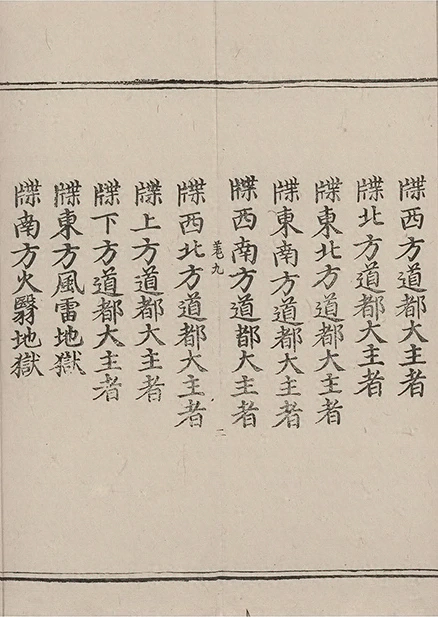 牒西方道都大主者
牒北方道都大主者
牒東北方道都大主者
牒東南方道都大主者
牒西南方道都大主者
卷九
二
牒西北方道都大主者
牒上方道都大主者
牒下方道都大主者
牒東方風雷地獄
牒南方火翳地獄